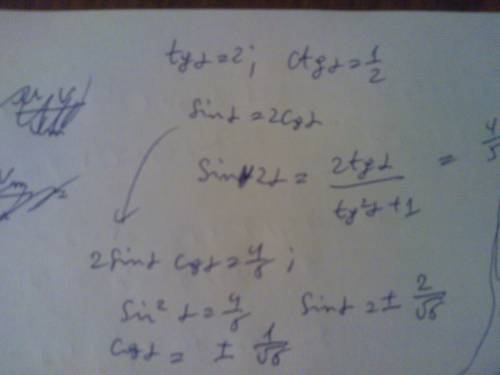 tgα = 2; ctgα = 1/2
sinα = 2cosα
sin2α = 2tgα / tg²α + 1 = 4/5
2sinα cosα = 4/5;
sin²α = 4/5 sinα = ± 2/√5
cosα = ± 1/√5